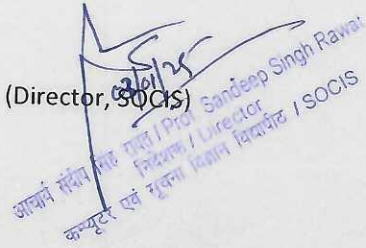 03/01/25
(Director, SOCIS)
आचार्य संदीप सिंह रावत / Prof. Sandeep Singh Rawat
निदेशक / Director
कम्प्यूटर एवं सूचना विज्ञान विद्यापीठ / SOCIS